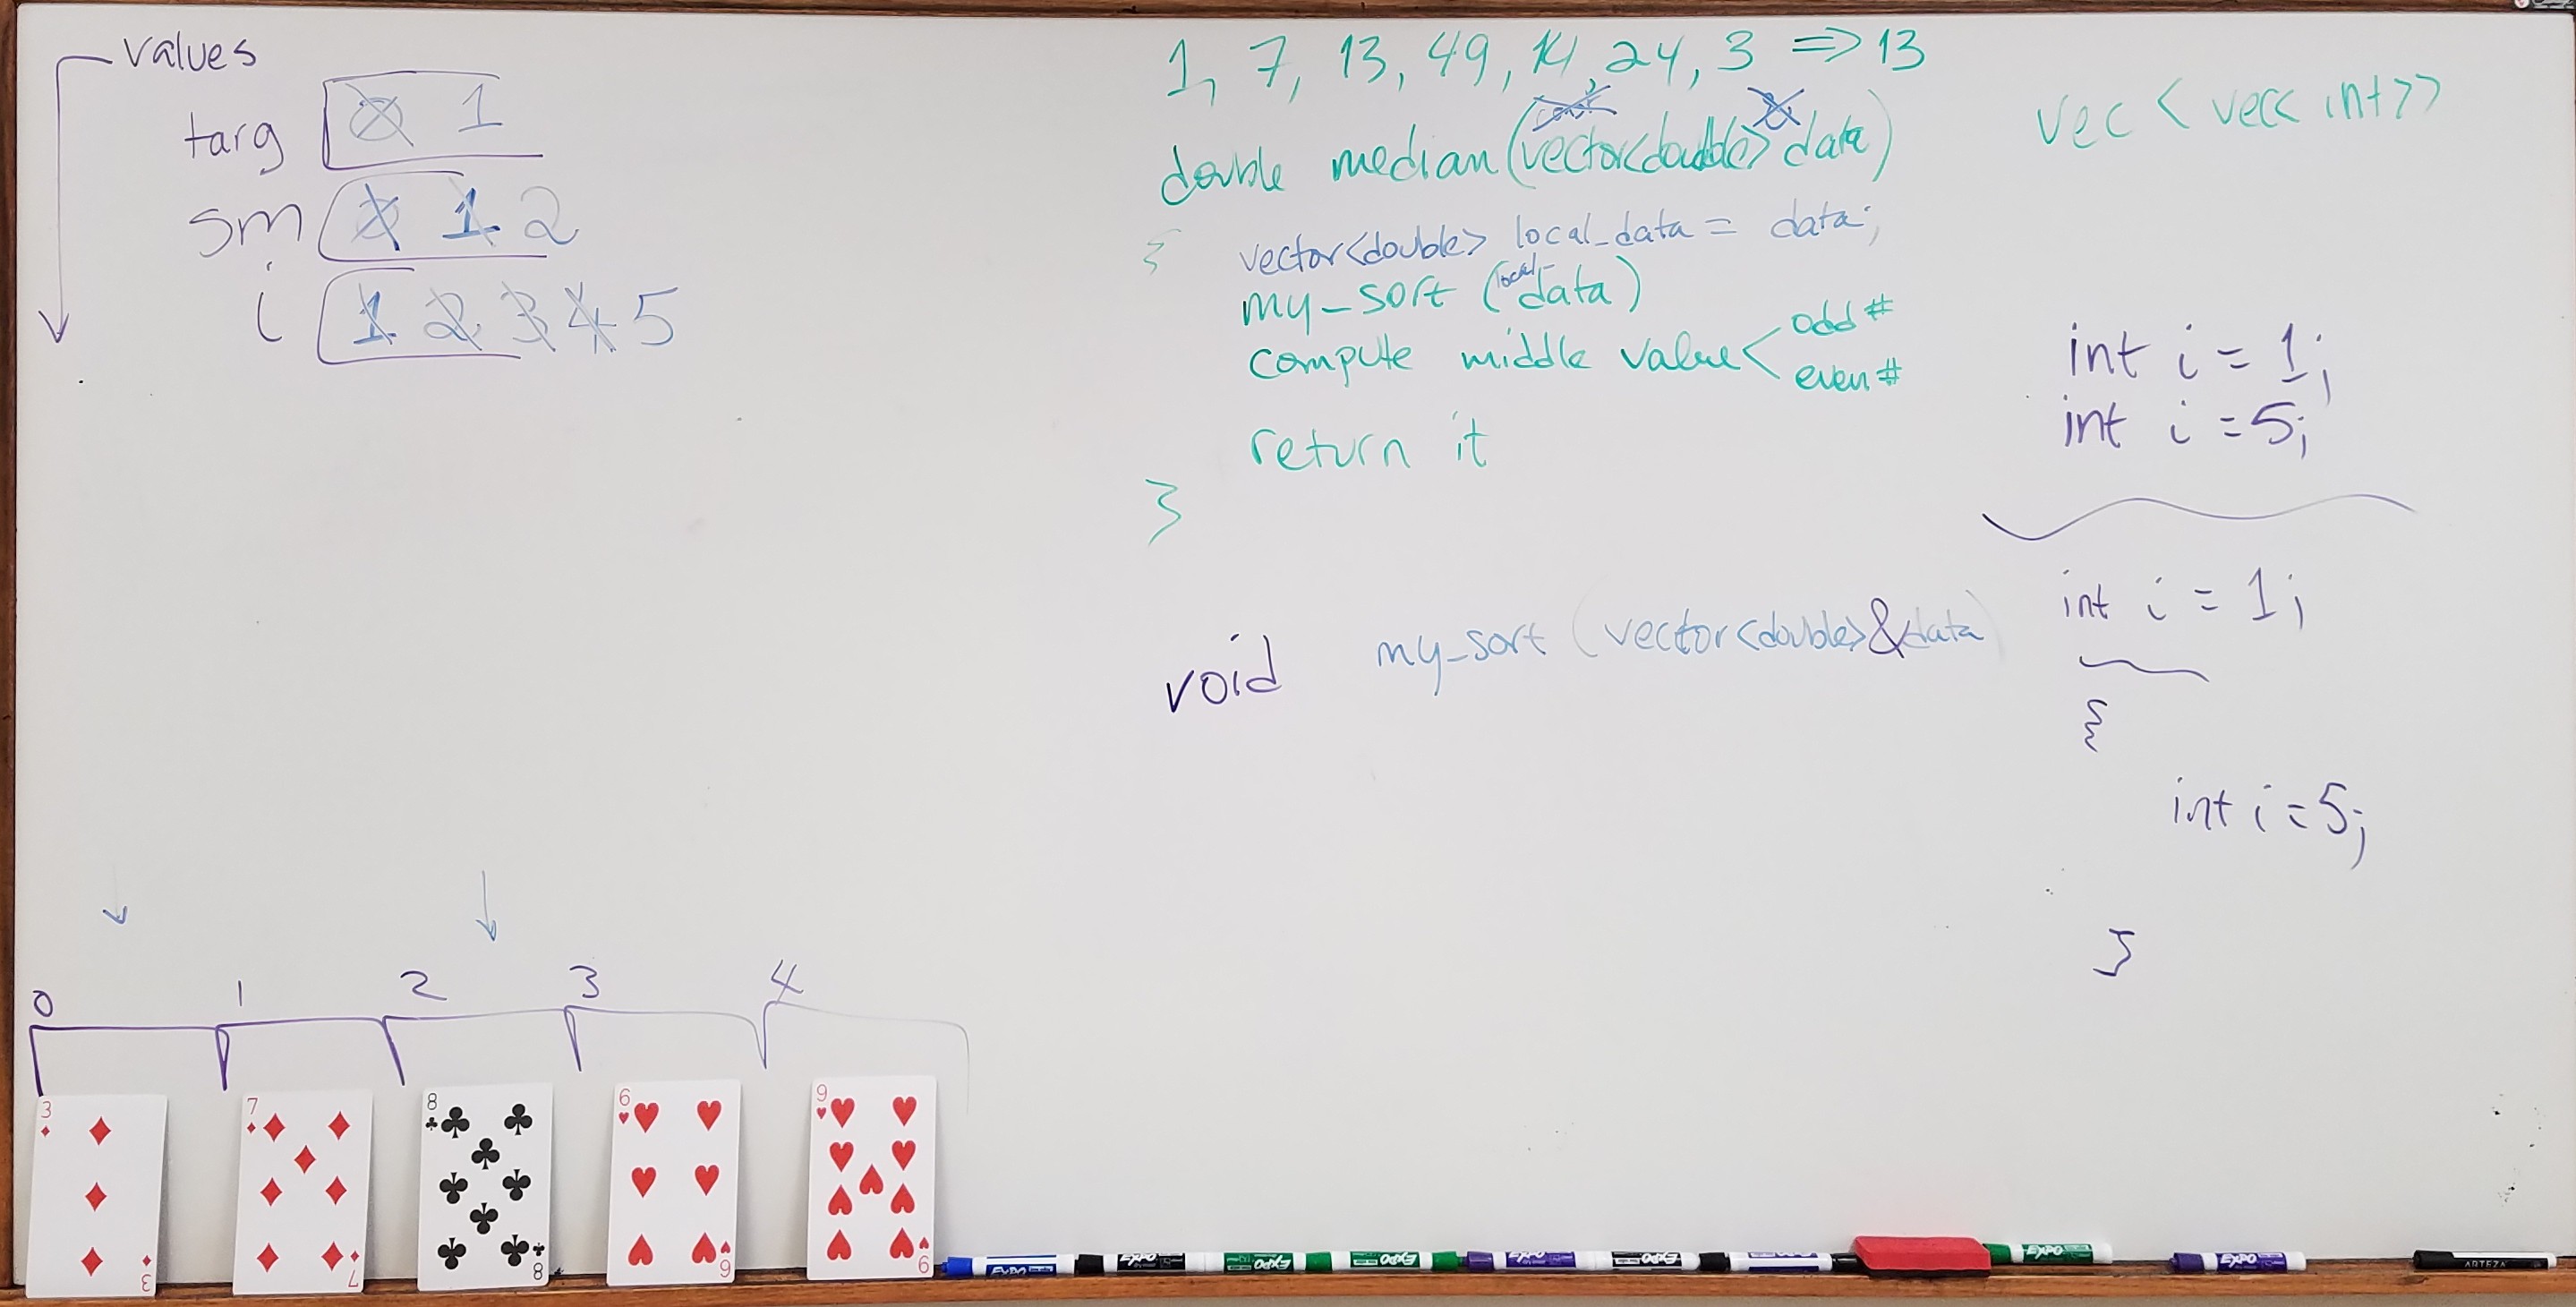 values
targ 0 1
sm 0 1 2
i 1 2 3 4 5
0 1 2 3 4
3 3
7 7
8 8
6 6
9 9
1, 7, 13, 49, 14, 24, 3 => 13
double median(vector<double> & data)
{
vector<double> local_data = data;
my_sort (local_data)
compute middle value < odd #
even #
return it
}
void my_sort (vector<double>&data)
vec < vec< int>>
int i = 1;
int i = 5;
int i = 1;
{
int i = 5;
}
EXPO EXPO EXPO EXPO EXPO EXPO EXPO EXPO ARTEZA